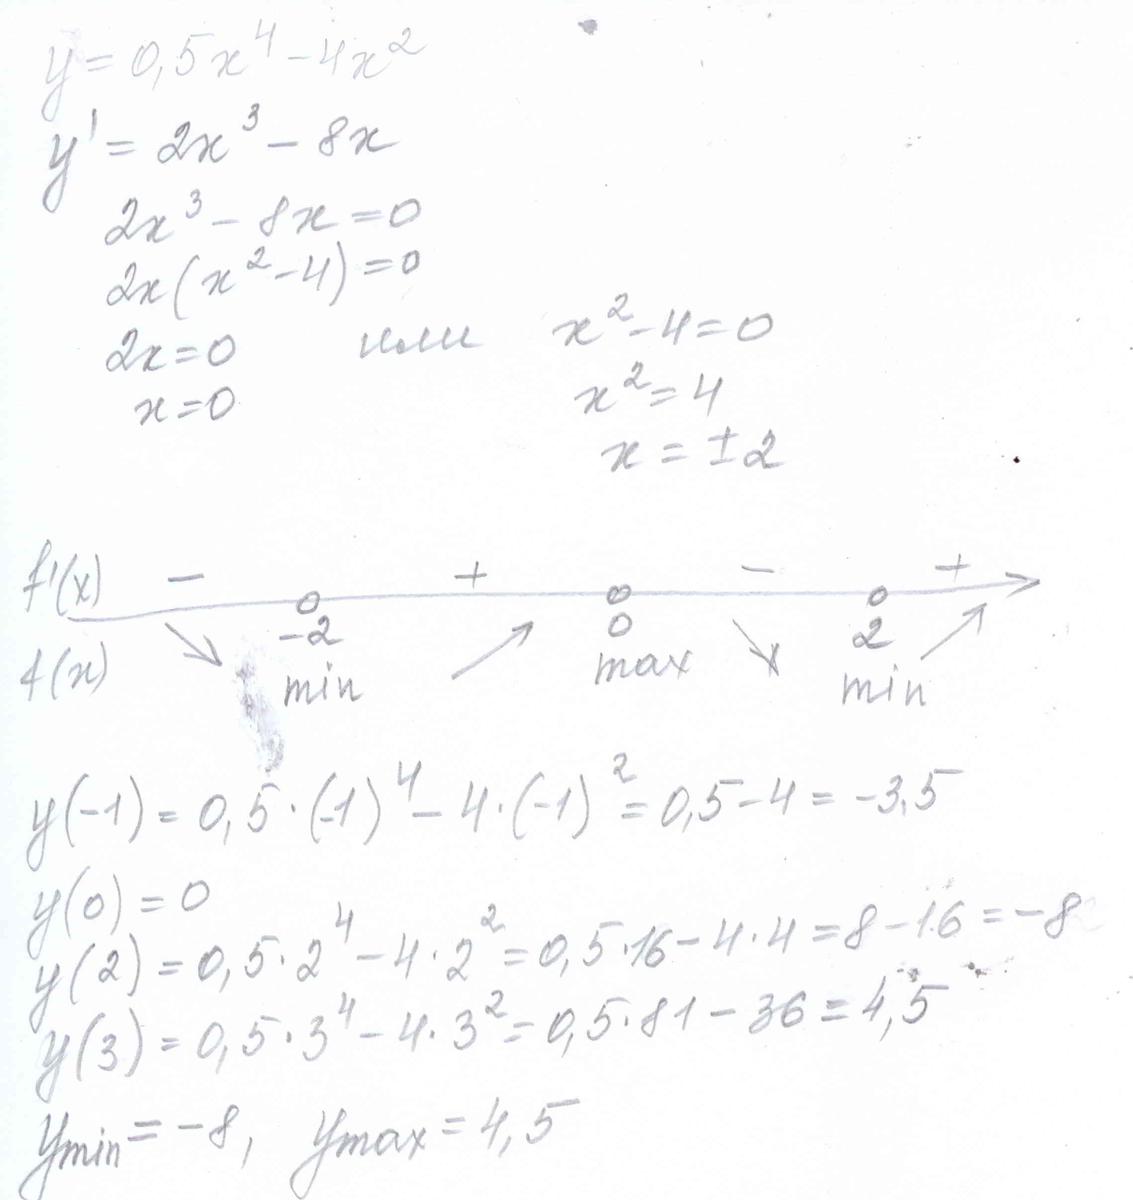 y = 0,5x⁴ - 4x²
y' = 2x³ - 8x
2x³ - 8x = 0
2x(x² - 4) = 0
2x = 0 или x² - 4 = 0
x = 0 x² = 4
x = ±2
f'(x) − + − +
-2 0 2
f(x) min max min
y(-1) = 0,5·(-1)⁴ - 4·(-1)² = 0,5 - 4 = -3,5
y(0) = 0
y(2) = 0,5·2⁴ - 4·2² = 0,5·16 - 4·4 = 8 - 16 = -8
y(3) = 0,5·3⁴ - 4·3² = 0,5·81 - 36 = 4,5
ymin = -8, ymax = 4,5